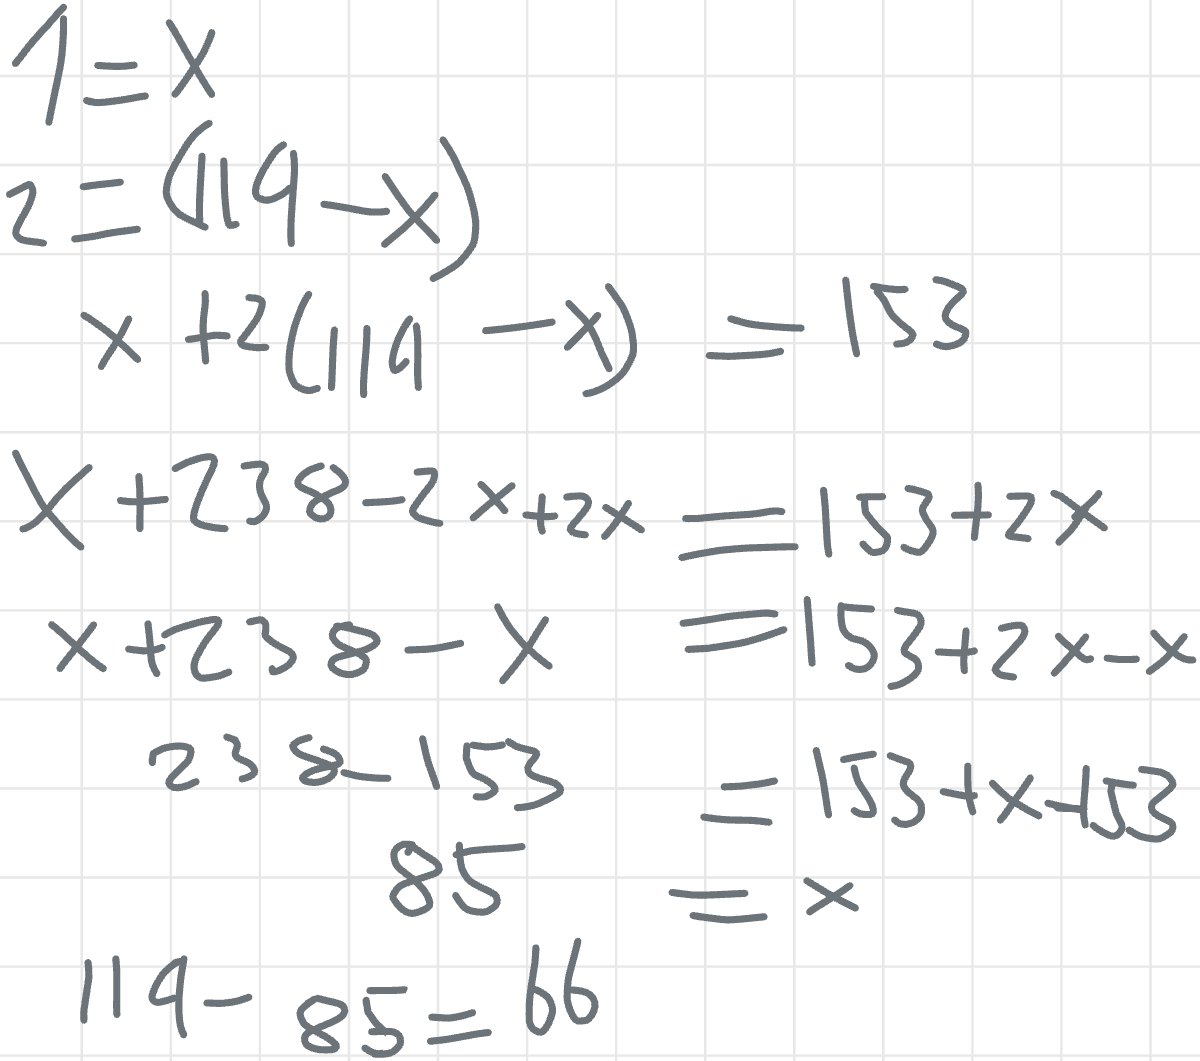 1 = x
2 = (119 - x)
x + 2(119 - x) = 153
x + 238 - 2x + 2x = 153 + 2x
x + 238 - x = 153 + 2x - x
238 - 153 = 153 + x - 153
85 = x
119 - 85 = 66